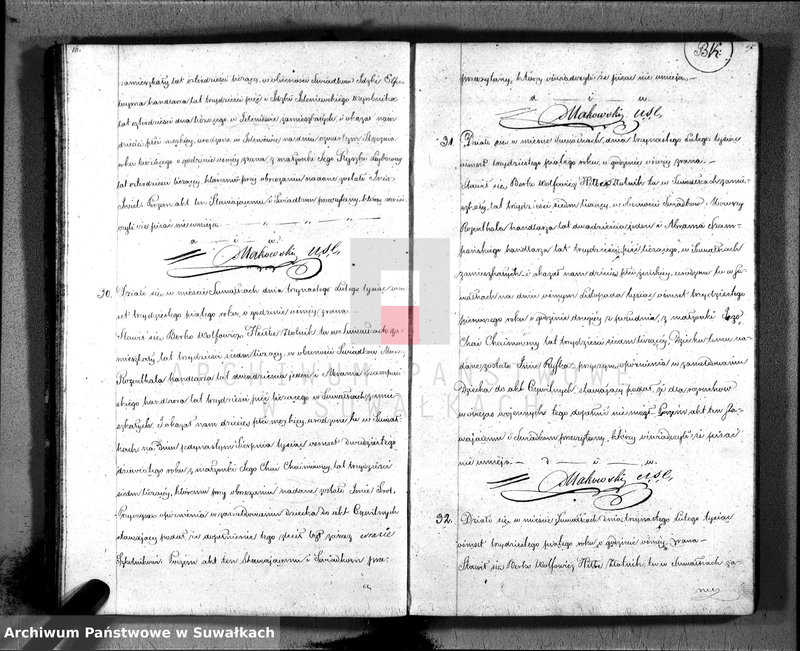 18.
zamieszkały lat czterdzieści liczący, w obecności Świadków
handlarza lat trzydzieści pięć i
lat czterdzieści dwa liczącego w zamieszkałych, i okazał nam
dziecię płci męzkiéj, urodzone w na dniu czwartym Stycznia
roku bieżącego o godzinie ósméj zrana, z małżonki Jego
lat czterdzieści liczącéj, któremu przy obrzezaniu nadane zostało Imie
Poczem akt ten Stawającemu i Świadkom przeczytany, którzy
pisać nieumieją.
Makowski U.S.C.
30. Działo się w mieście Suwałkach dnia trzynastego Lutego tysiąc
trzydziestego piątego roku, o godzinie ósméj zrana
Stawił się Berko Wolfowicz Hilke Złotnik tu w Suwałkach za-
mieszkały, lat trzydzieści siedm liczący, w obecności Świadków
Rozenthala handlarza lat dwadzieścia jeden i Abrama Szampań-
skiego handlarza lat trzydzieści pięć liczącego w Suwałkach zamie-
szkałych. I okazał nam dziecię płci męzkiéj, urodzone tu w Suwał-
kach na Dniu jedynastym Sierpnia tysiąc ośmset dwudziestego
dziewiątego roku z małżonki Jego Chai Chaimowny, lat trzydzieści
siedm liczącéj, któremu przy obrzezaniu nadane zostało Imie
Przyczyną opóźnienia w zameldowaniu Dziecka do akt Cywilnych
stawający podał, że dopełnienie tego zlecił był zaraz wrazie
Szkolnikowi. Poczem akt ten Stawającemu i Świadkom prze-
przeczytany, którzy oświadczyli że pisać nieumieją.
Makowski U.S.C.
31. Działo się w mieście Suwałkach, dnia trzynastego Lutego tysiąc
ośmset trzydziestego piątego roku, o godzinie ósméj zrana.
Stawił się Berko Wolfowicz Hilke Złotnik tu w Suwałkach zamie-
szkały, lat trzydzieści siedm liczący, w obecności Świadków
Rozenthala handlarza lat dwadzieścia jeden i Abrama Szam-
pańskiego handlarza lat trzydzieści pięć liczącego, w Suwałkach
zamieszkałych, i okazał nam dziecię płci żeńskiéj, urodzone tu w Su-
wałkach na dniu ósmym Listopada tysiąc ośmset trzydziestego
pierwszego roku o godzinie drugiéj z południa, z małżonki Jego
Chai Chaimowny lat trzydzieści siedm liczącéj, Dziecku temu na-
dane zostało Imie Ryfka przyczyn opóźnienia w zameldowaniu
Dziecka do akt Cywilnych, stawający podał, że dla rozruchów
w czasie wojennych tego dopełnić niemógł. Poczem akt ten Sta-
wającemu i Świadkom przeczytany, którzy oświadczyli że pisać
nie umieją.
Makowski U.S.C.
32. Działo się w mieście Suwałkach dnia trzynastego Lutego tysiąc
ośmset trzydziestego piątego roku o godzinie ósméj zrana
Stawił się Berko Wolfowicz Hilke Złotnik, tu w Suwałkach za-
ARCHIWUM PAŃSTWOWE
W SUWAŁKACH
Archiwum Państwowe w Suwałkach